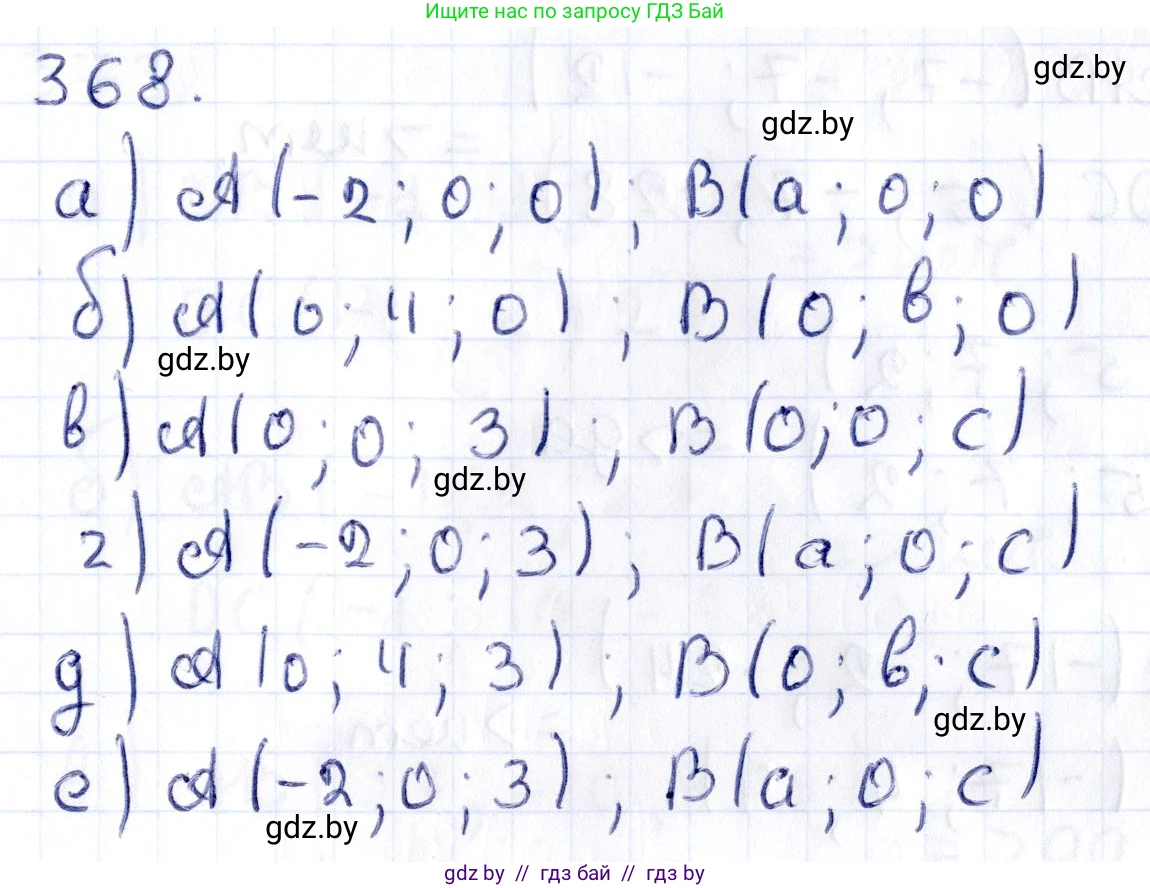 Ищите нас по запросу ГДЗ Бай
368.
gdz.by
gdz.by
а) A(-2; 0; 0); B(a; 0; 0)
б) A(0; 4; 0); B(0; в; 0)
gdz.by
в) A(0; 0; 3); B(0; 0; c)
gdz.by
г) A(-2; 0; 3); B(a; 0; c)
д) A(0; 4; 3); B(0; в; c)
gdz.by
е) A(-2; 0; 3); B(a; 0; c)
gdz.by
gdz by // гдз бай // гдз by